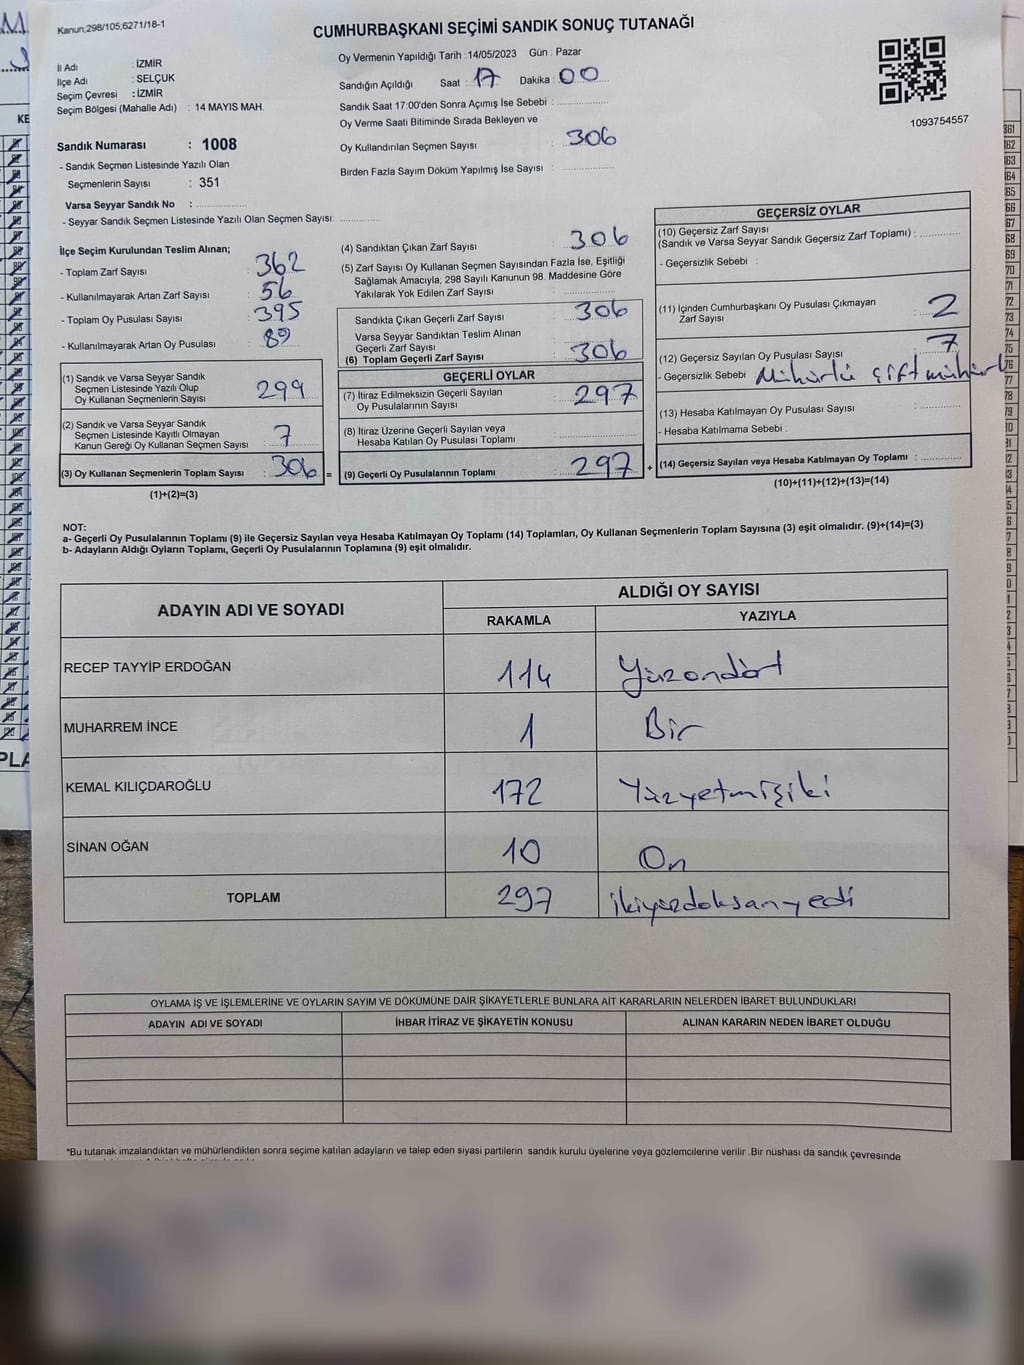 Kanun;298/105;6271/18-1
CUMHURBAŞKANI SEÇİMİ SANDIK SONUÇ TUTANAĞI
1093754557
İl Adı : İZMİR
İlçe Adı : SELÇUK
Seçim Çevresi : İZMİR
Seçim Bölgesi (Mahalle Adı) : 14 MAYIS MAH.
Sandık Numarası : 1008
- Sandık Seçmen Listesinde Yazılı Olan
Seçmenlerin Sayısı : 351
Varsa Seyyar Sandık No : ....................
- Seyyar Sandık Seçmen Listesinde Yazılı Olan Seçmen Sayısı: ................
Oy Vermenin Yapıldığı Tarih : 14/05/2023 Gün : Pazar
Sandığın Açıldığı Saat : 17 Dakika : 00
Sandık Saat 17:00'den Sonra Açımış İse Sebebi : ................
Oy Verme Saati Bitiminde Sırada Bekleyen ve
Oy Kullandırılan Seçmen Sayısı : 306
Birden Fazla Sayım Döküm Yapılmış İse Sayısı : ................
İlçe Seçim Kurulundan Teslim Alınan;
- Toplam Zarf Sayısı : 362
- Kullanılmayarak Artan Zarf Sayısı : 56
- Toplam Oy Pusulası Sayısı : 395
- Kullanılmayarak Artan Oy Pusulası : 89
(1) Sandık ve Varsa Seyyar Sandık
Seçmen Listesinde Yazılı Olup
Oy Kullanan Seçmenlerin Sayısı : 299
(2) Sandık ve Varsa Seyyar Sandık
Seçmen Listesinde Kayıtlı Olmayan
Kanun Gereği Oy Kullanan Seçmen Sayısı : 7
(3) Oy Kullanan Seçmenlerin Toplam Sayısı : 306 =
(1)+(2)=(3)
(4) Sandıktan Çıkan Zarf Sayısı : 306
(5) Zarf Sayısı Oy Kullanan Seçmen Sayısından Fazla İse, Eşitliği
Sağlamak Amacıyla; 298 Sayılı Kanunun 98. Maddesine Göre
Yakılarak Yok Edilen Zarf Sayısı : ................
Sandıkta Çıkan Geçerli Zarf Sayısı : 306
Varsa Seyyar Sandıktan Teslim Alınan
Geçerli Zarf Sayısı : ................
(6) Toplam Geçerli Zarf Sayısı : 306
GEÇERLİ OYLAR
(7) İtiraz Edilmeksizin Geçerli Sayılan
Oy Pusulalarının Sayısı : 297
(8) İtiraz Üzerine Geçerli Sayılan veya
Hesaba Katılan Oy Pusulası Toplamı : ................
(9) Geçerli Oy Pusulalarının Toplamı : 297 +
GEÇERSİZ OYLAR
(10) Geçersiz Zarf Sayısı
(Sandık ve Varsa Seyyar Sandık Geçersiz Zarf Toplamı) : ............
- Geçersizlik Sebebi :
(11) İçinden Cumhurbaşkanı Oy Pusulası Çıkmayan
Zarf Sayısı : 2
(12) Geçersiz Sayılan Oy Pusulası Sayısı : 7
- Geçersizlik Sebebi : Mühürlü çift mühürl
(13) Hesaba Katılmayan Oy Pusulası Sayısı : ............
- Hesaba Katılmama Sebebi :
(14) Geçersiz Sayılan veya Hesaba Katılmayan Oy Toplamı : ............
(10)+(11)+(12)+(13)=(14)
NOT:
a- Geçerli Oy Pusulalarının Toplamı (9) ile Geçersiz Sayılan veya Hesaba Katılmayan Oy Toplamı (14) Toplamları, Oy Kullanan Seçmenlerin Toplam Sayısına (3) eşit olmalıdır. (9)+(14)=(3)
b- Adayların Aldığı Oyların Toplamı, Geçerli Oy Pusulalarının Toplamına (9) eşit olmalıdır.
ADAYIN ADI VE SOYADI ALDIĞI OY SAYISI
RAKAMLA YAZIYLA
RECEP TAYYİP ERDOĞAN 114 Yüzondört
MUHARREM İNCE 1 Bir
KEMAL KILIÇDAROĞLU 172 Yüzyetmişiki
SİNAN OĞAN 10 On
TOPLAM 297 ikiyüzdoksanyedi
OYLAMA İŞ VE İŞLEMLERİNE VE OYLARIN SAYIM VE DÖKÜMÜNE DAİR ŞİKAYETLERLE BUNLARA AİT KARARLARIN NELERDEN İBARET BULUNDUKLARI
ADAYIN ADI VE SOYADI İHBAR İTİRAZ VE ŞİKAYETİN KONUSU ALINAN KARARIN NEDEN İBARET OLDUĞU
*Bu tutanak imzalandıktan ve mühürlendikten sonra seçime katılan adayların ve talep eden siyasi partilerin sandık kurulu üyelerine veya gözlemcilerine verilir .Bir nüshası da sandık çevresinde